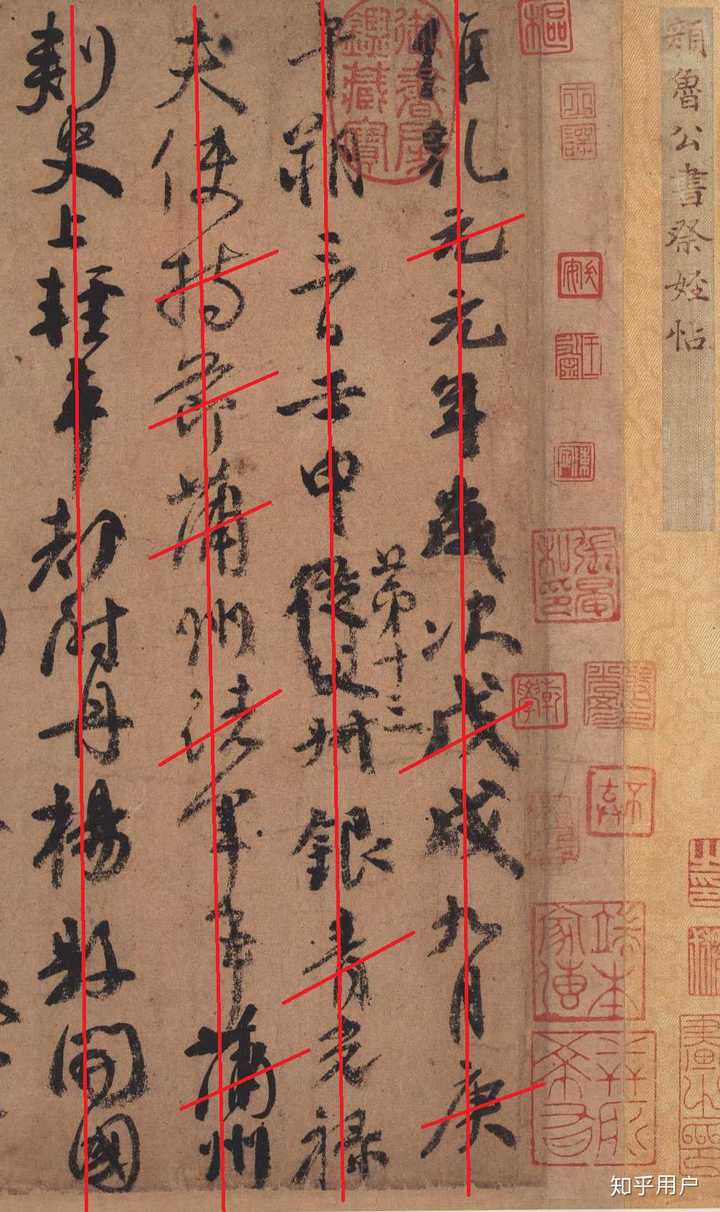 顏魯公書祭姪帖
維乾元元年歲次戊戌九月庚
午朔三日壬申從父叔銀青光祿
第十三
夫使持節蒲州諸軍事蒲州
刺史上輕車都尉丹楊縣開國
御書房鑑藏寶
知乎用户